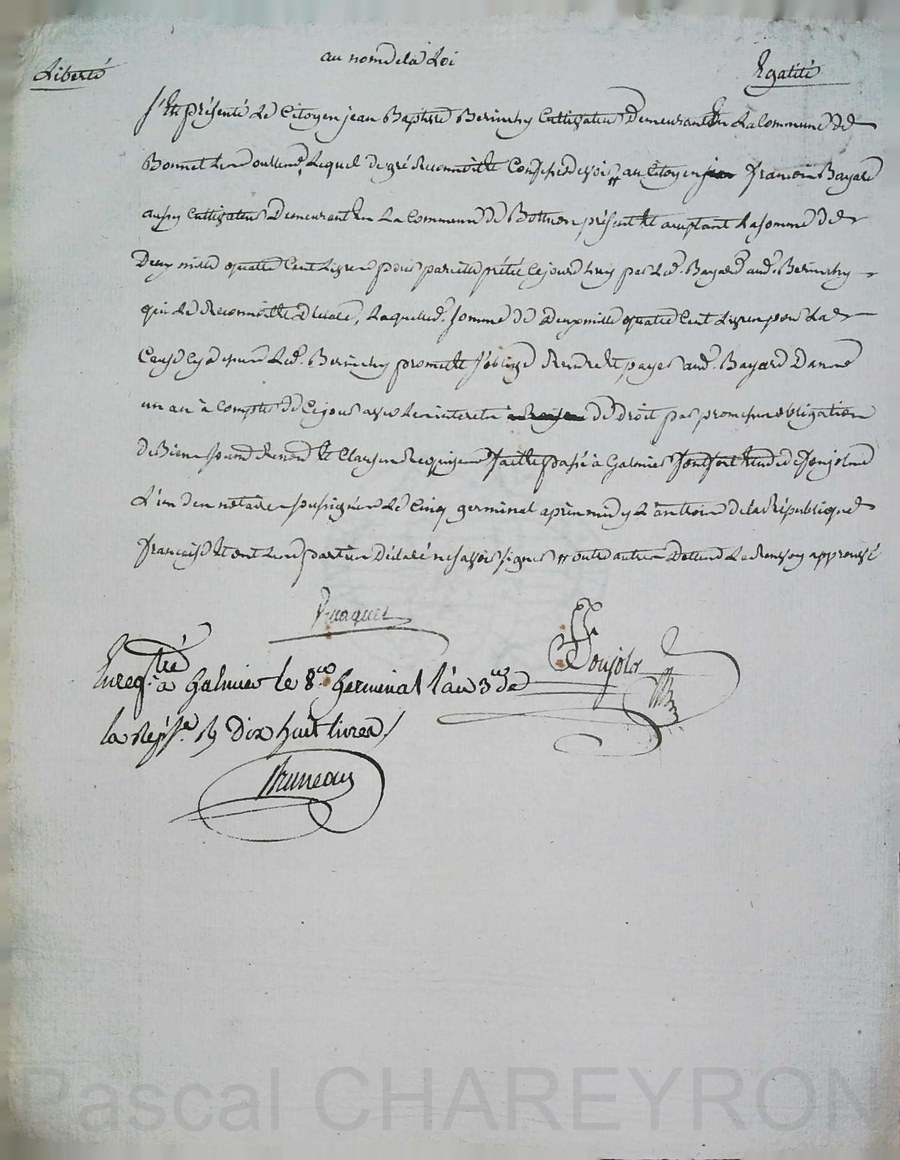 Liberté au nom de la Loi Egalité
S'est présenté Le Citoyen jean Baptiste Berinchy Cultivateur Demeurant En La Commune de
Bonnet Les oulles, Lequel de gré Reconnoit et Confesse devoir au Citoyen francois Bayard
aussy Cultivateur Demeurant En La Commune de Bothéon présent et aceptant La somme de
Deux mille quatre Cent Livres pour pareille prêtée Cejourd'huy par Led. Bayard aud. Berinchy
qui Le Reconnoit, Laquelled. somme de Deux mille quatre Cent Livres pour La
Cause cy dessus Led. Berinchy promet et s'oblige Rendre et payer aud. Bayard Dans
un an à Compter de Cejour avec Les interets de Droit par promesse obligation
de Biens Renon. et Clauses Requises fait et passé à Galmier
L'un des notaires soussignés Le Cinq germinal après midy L'an trois de la République
francaise et ont Les parties Déclaré ne savoir signer approuvé
Ponjols
Enreg.tré à Galmier le 8.eme Germinal l'an 3.me de
la Rép.e R dix huit livres
Bruneau
Pascal CHAREYRON